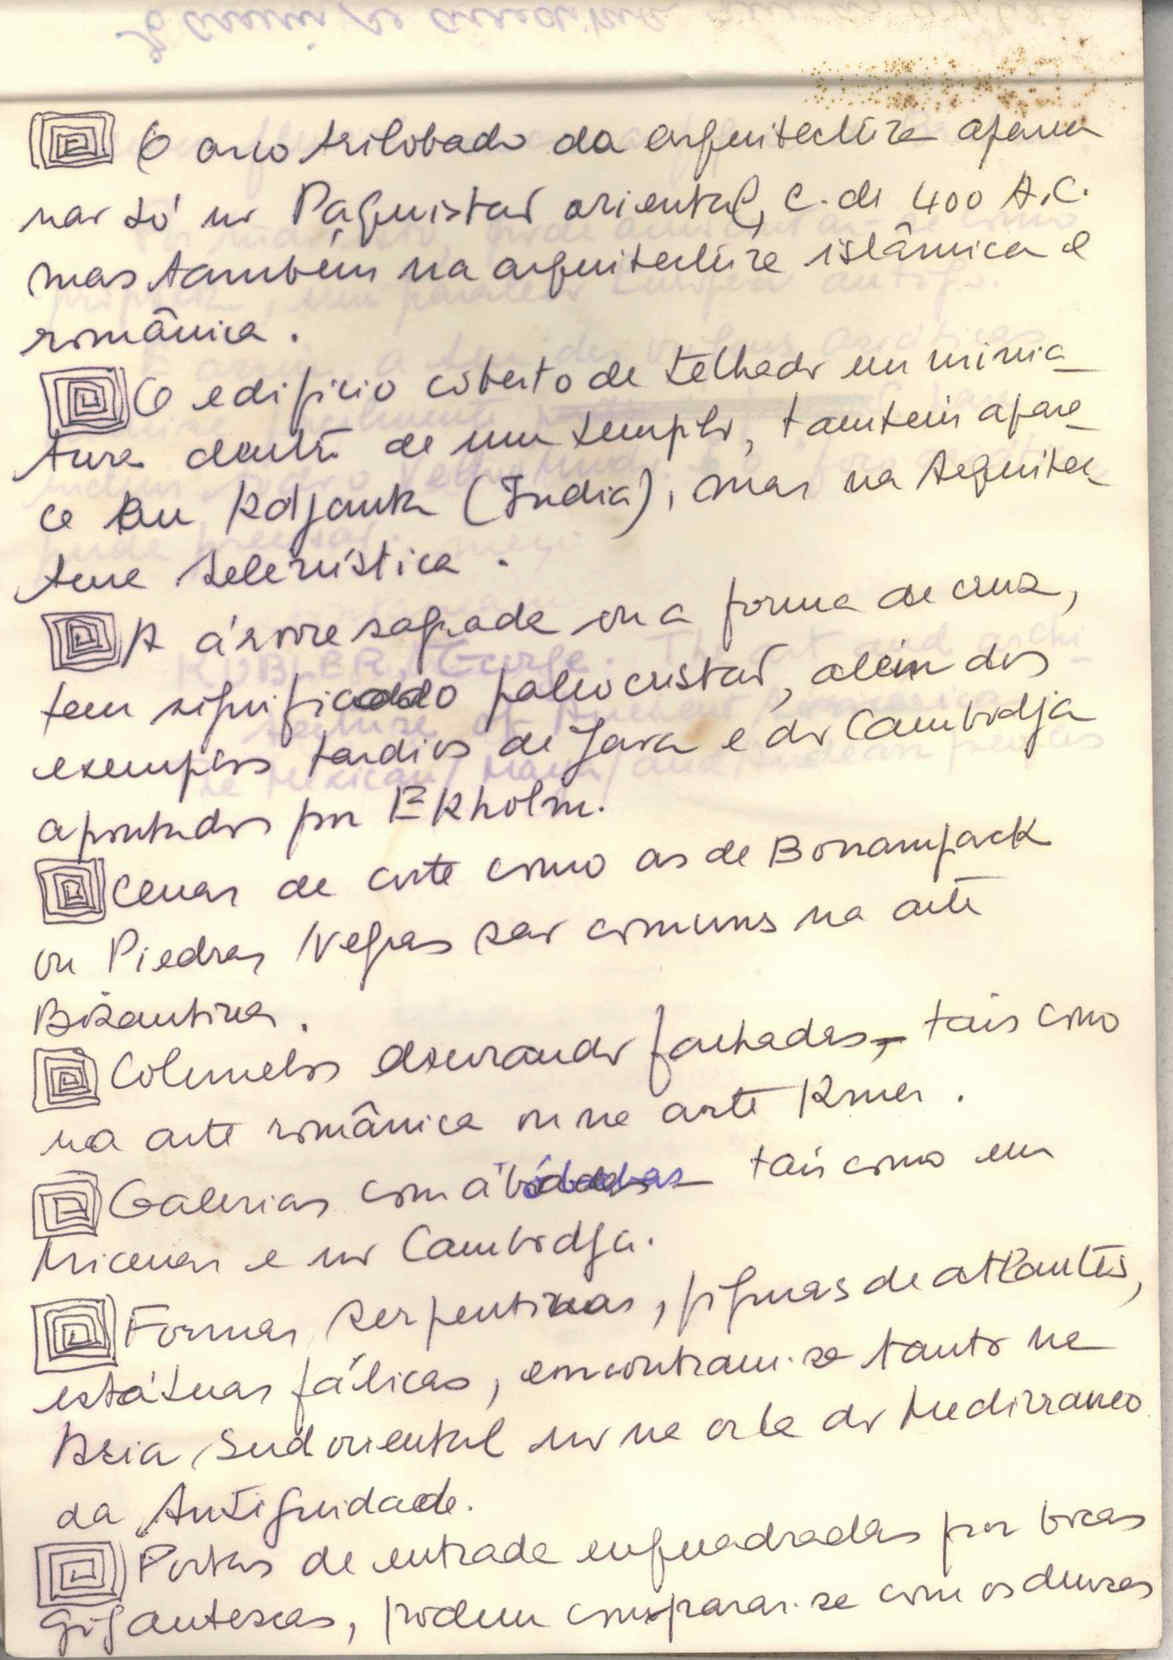 O arco trilobado da arquitectura apena
nar só no Paquistaõ oriental, c. de 400 A.C.
mas também na arquitectura islâmica e
românica.
O edifício coberto de telhado em minia_
tura dentro de um templo, também apare_
ce em (India), mas na Arquitec_
tura helenística.
A árvore sagrada ou a forma de cruz,
tem significado paleocristaõ, além dos
exemplos tardios de Java e do Cambodja
apontados por Ekholm.
Cenas de corte como as de Bonampack
ou Piedras Negras sao comuns na arte
Bizantina.
Colunelos decorando fachadas, tais como
na arte românica ou na arte Kmer.
Galerias com abóbadas – tais como em
Micenas e no Cambodja.
Formas serpentinas, figuras de atlantes,
estátuas fálicas, encontram-se tanto na
Asia Sudoriental no na orla do Mediterraneo
da Antiguidade.
Portas de entrada enquadradas por bocas
gigantescas, podem comparar-se com os deuses